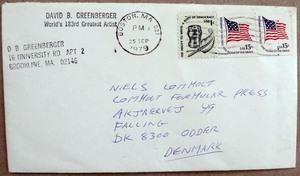 DAVID B. GREENBERGER
World's 183rd Greatest Artist
D B GREENBERGER
16 UNIVERSITY RD APT 2
BROOKLINE, MA. 02146
BOSTON, MA. 021
PM
25 SEP
1979
OF DEMOCRACY
USA 15c
USA 15c
NIELS LOMHOLT
LOMHOLT FORMULAR PRESS
AKJAERVEJ 49
FALLING
DK 8300 ODDER
DENMARK